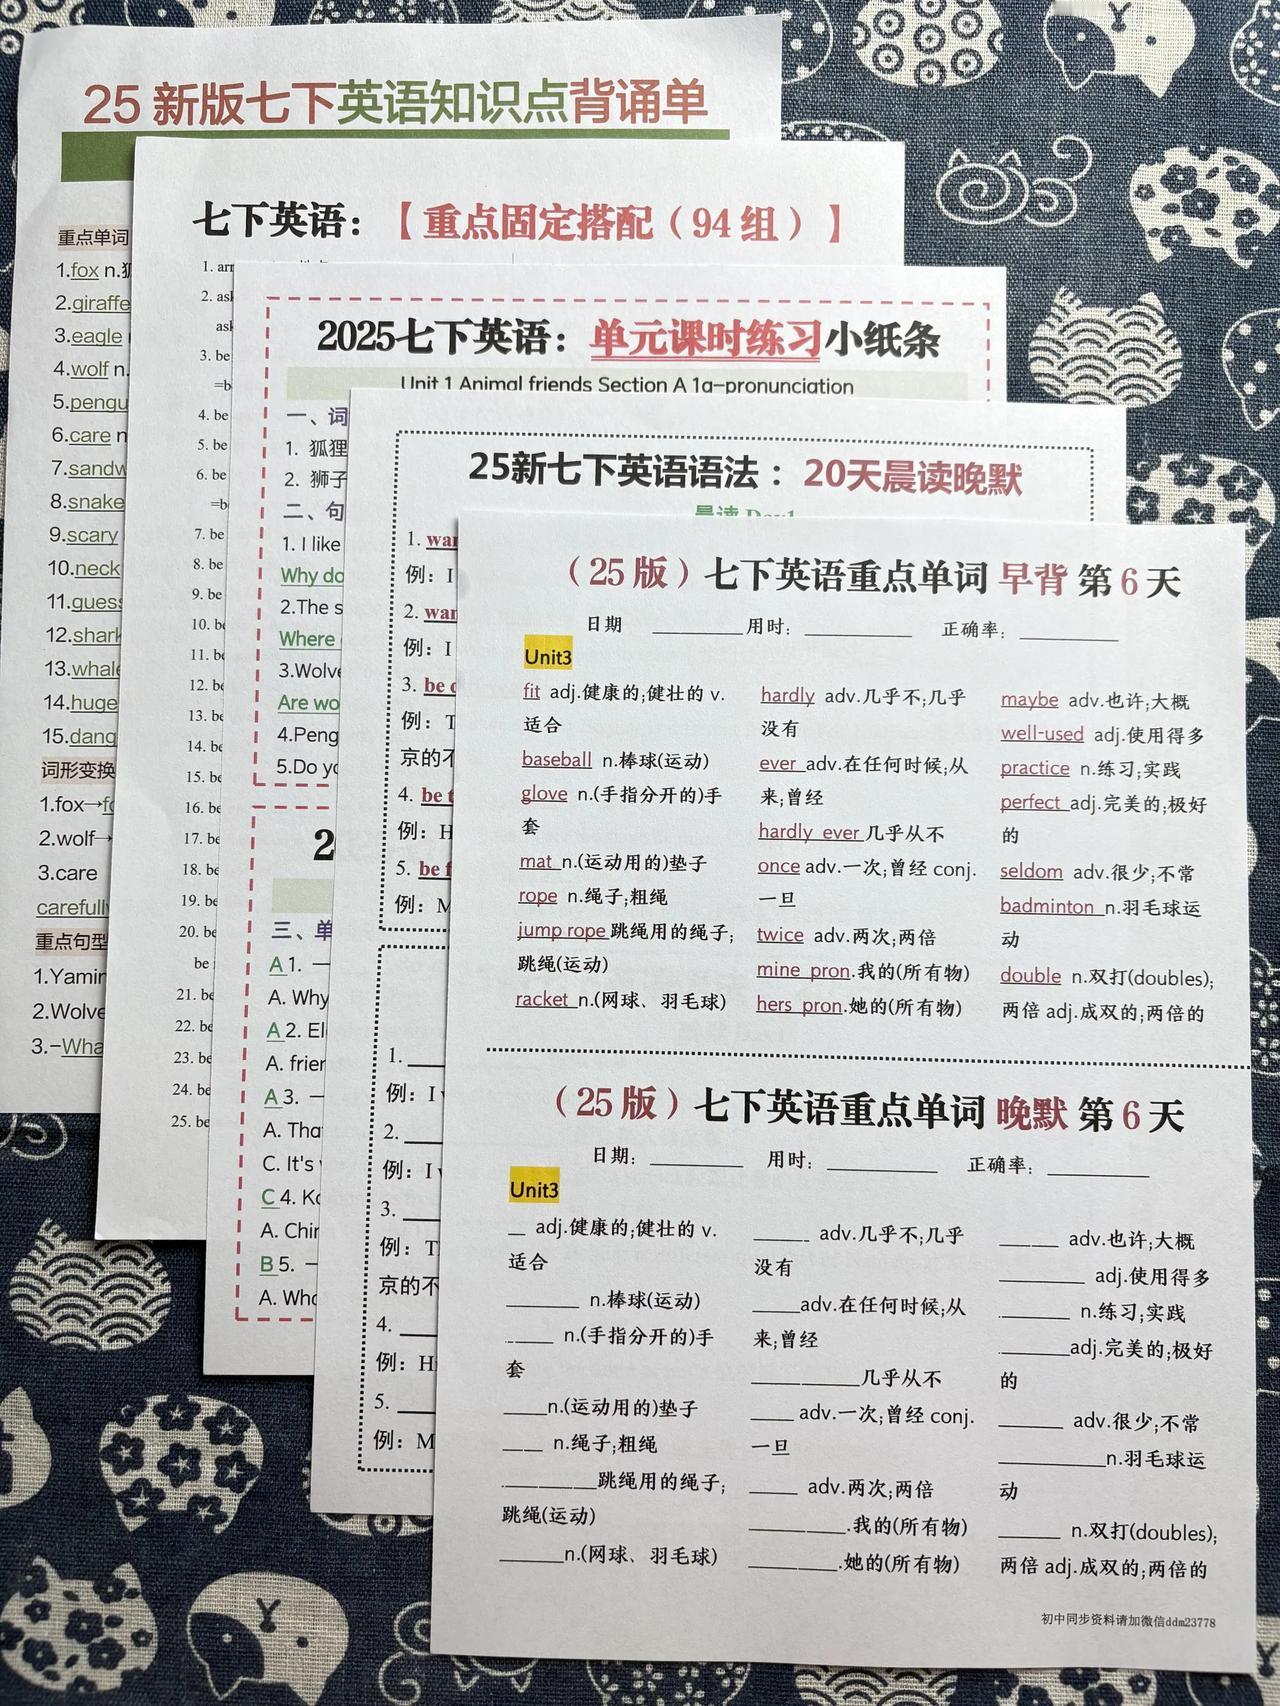 25 新版七下英语知识点背诵单
重点单词
1.fox n.狐
2.giraffe
3.eagle
4.wolf n.
5.pengu
6.care n
7.sandw
8.snake
9.scary
10.neck
11.guess
12.shark
13.whale
14.huge
15.dang
词形变换
1.fox→fo
2.wolf→
3.care
carefully
重点句型
1.Yamin
2.Wolve
3.-Wha
七下英语：【重点固定搭配（94 组）】
1. arr
2. ask
ask
3. be
=b
4. be
5. be
6. be
=b
7. be
8. be
9. be
10. be
11. be
12. be
13. be
14. be
15. be
16. be
17. be
18. be
19. be
20. be
be
21. be
22. be
23. be
24. be
25. be
2025七下英语：单元课时练习小纸条
Unit 1 Animal friends Section A 1a-pronunciation
一、词
1. 狐狸
2. 狮子
二、句
1. I like
Why do
2.The s
Where
3.Wolve
Are wo
4.Peng
5.Do yo
2
三、单
A 1. —
A. Why
A 2. El
A. frier
A 3. —
A. Tha
C. It's
C 4. Ko
A. Chin
B 5. —
A. Who
25新七下英语语法：20天晨读晚默
晨读 Day1
1. wan
例：I
2. wan
例：I
3. be
例：T
京的不
4. be t
例：H
5. be f
例：M
1. ____
例：I
2. ____
例：I
3. ____
例：T
京的不
4. ____
例：Hi
5. ____
例：M
（25 版）七下英语重点单词 早背 第 6 天
日期 ________ 用时：________ 正确率：________
Unit3
fit adj.健康的;健壮的 v.
适合
baseball n.棒球(运动)
glove n.(手指分开的)手
套
mat n.(运动用的)垫子
rope n.绳子;粗绳
jump rope 跳绳用的绳子;
跳绳(运动)
racket n.(网球、羽毛球)
hardly adv.几乎不;几乎
没有
ever adv.在任何时候;从
来;曾经
hardly ever 几乎从不
once adv.一次;曾经 conj.
一旦
twice adv.两次;两倍
mine pron.我的(所有物)
hers pron.她的(所有物)
maybe adv.也许;大概
well-used adj.使用得多
practice n.练习;实践
perfect adj.完美的;极好
的
seldom adv.很少;不常
badminton n.羽毛球运
动
double n.双打(doubles);
两倍 adj.成双的;两倍的
（25 版）七下英语重点单词 晚默 第 6 天
日期：________ 用时：________ 正确率：________
Unit3
__ adj.健康的;健壮的 v.
适合
_______ n.棒球(运动)
_____ n.(手指分开的)手
套
____n.(运动用的)垫子
____ n.绳子;粗绳
_________跳绳用的绳子;
跳绳(运动)
______n.(网球、羽毛球)
_____ adv.几乎不;几乎
没有
____adv.在任何时候;从
来;曾经
__________几乎从不
____ adv.一次;曾经 conj.
一旦
____ adv.两次;两倍
_________.我的(所有物)
________.她的(所有物)
_____ adv.也许;大概
________ adj.使用得多
_______ n.练习;实践
_______adj.完美的;极好
的
______ adv.很少;不常
__________n.羽毛球运
动
______ n.双打(doubles);
两倍 adj.成双的;两倍的
初中同步资料请加微信ddm23778